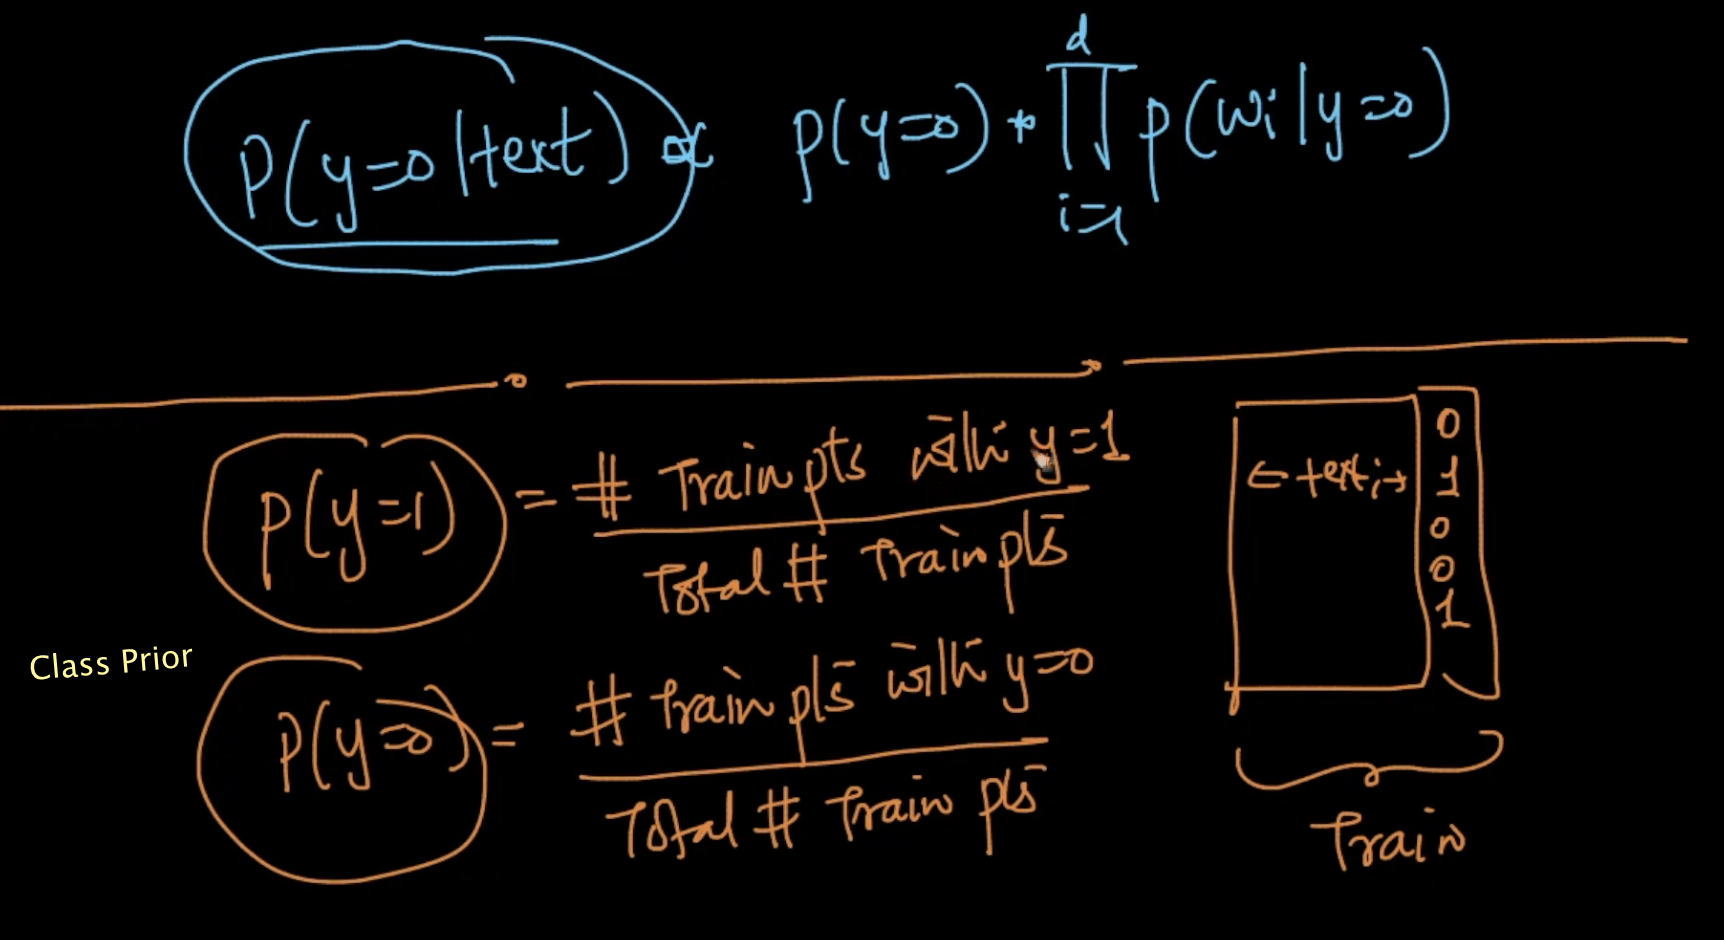 P(y=0|text) ∝ p(y=0) * ∏_{i=1}^{d} p(wi|y=0)
p(y=1) = # Train pts with y=1 / Total # Train pts
Class Prior
p(y=0) = # Train pts with y=0 / Total # Train pts
0
← texti→ 1
0
0
1
Train